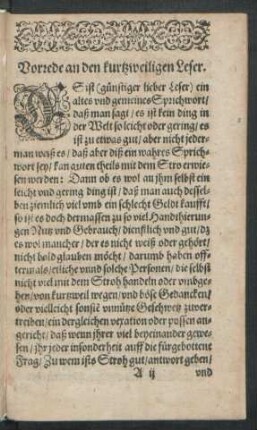 Vorrede an den kurtzweiligen Leser.
ES ist (günstiger lieber Leser) ein
altes vnd gemeines Sprichwort/
daß man sagt / es ist kein ding in
der Welt so leicht oder gering / es
ist zu etwas gut / aber nicht jeder-
man weiß es / daß aber diß ein wahres Sprich-
wort sey / kan guten theils mit dem Stro erwie-
sen werden: Dann ob es wol an jhm selbst ein
leicht vnd gering ding ist / daß man auch dessel-
ben ziemlich viel vmb ein schlecht Geldt kaufft /
so ist es doch dermassen zu so viel Handthierun-
gen Nutz vnd Gebrauch / dienstlich vnd gut / dz
es wol mancher / der es nicht weiß oder gehört /
nicht bald glauben möcht / darumb haben off-
termals / etliche vnnd solche Personen / die selbst
nicht viel mit dem Stroh handeln oder vmbge-
hen / von kurtzweil wegen / vnd böse Gedancken /
oder vielleicht sonst vnnütze Geschwetz zuver-
treiben / ein dergleichen vexation oder possen an-
gericht / daß wenn jhrer viel beyeinander gewe-
sen / jhr jeder insonderheit auff die fürgebottene
Frag / Zu wem ists Stroh gut / antwort geben /
A ij vnd